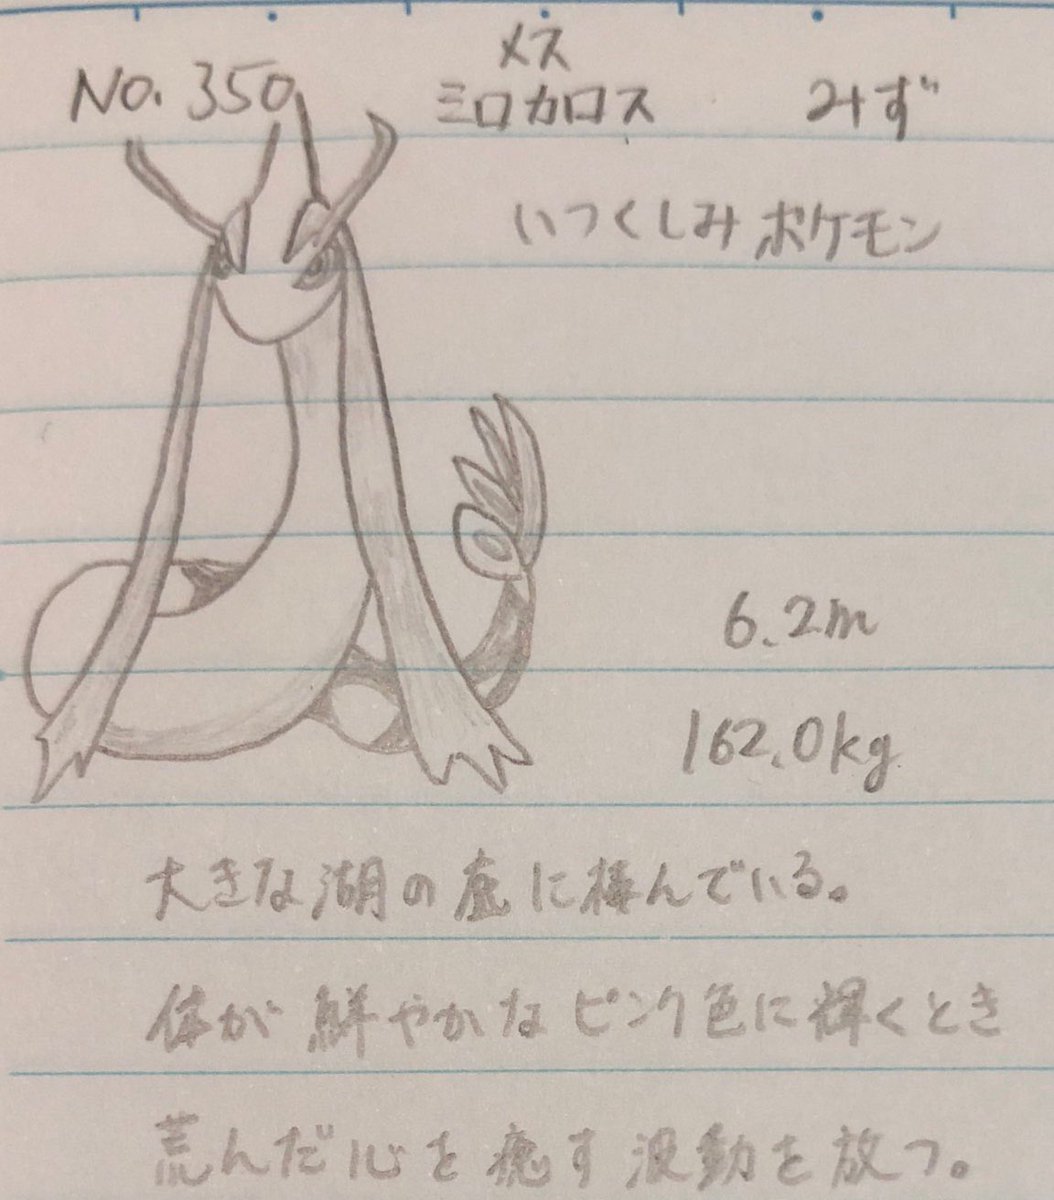 No. 350
メス
ミロカロス
みず
いつくしみポケモン
6.2m
162.0kg
大きな湖の底に棲んでいる。
体が鮮やかなピンク色に輝くとき
荒んだ心を癒す波動を放つ。